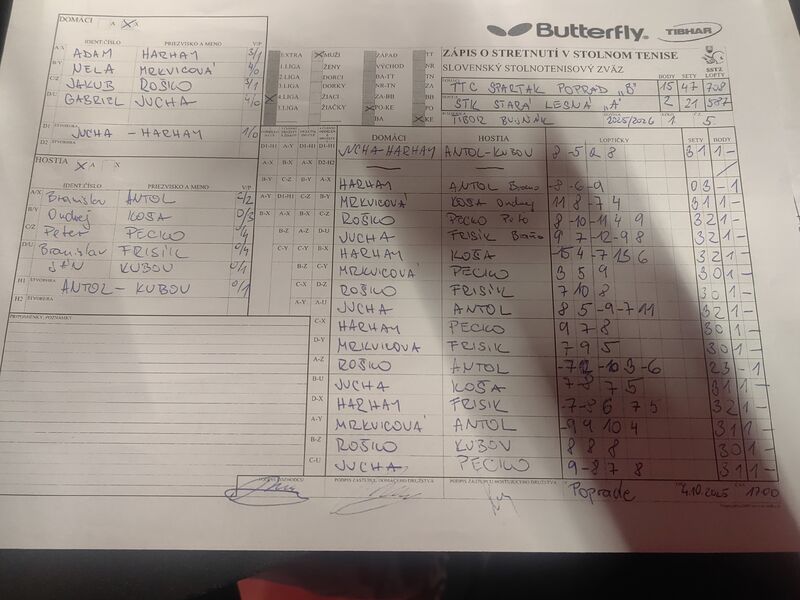 DOMÁCI A X A
IDENT.ČÍSLO PRIEZVISKO A MENO V/P
A/X ADAM HARHAY 3/1
B/Y NELA MRKVICOVÁ 4/0
C/Z JAKUB ROŠKO 3/1
GABRIEL JUCHA 4/0
D1 ŠTVORHRA JUCHA - HARHAY 1/0
D2
HOSTIA X A X
IDENT.ČÍSLO PRIEZVISKO A MENO V/P
A/X Branislav ANTOL
B/Y Ondrej KOŠA 0/3
C/Z Peter PECKO 0/4
D/U Branislav FRISÍK 0/4
JÁN KUBOV 0/1
H1 ŠTVORHRA ANTOL - KUBOV 0/1
H2 ŠTVORHRA
PRIPOMIENKY, POZNÁMKY
Butterfly TIBHAR
ZÁPIS O STRETNUTÍ V STOLNOM TENISE
SLOVENSKÝ STOLNOTENISOVÝ ZVÄZ
SSTZ
BODY SETY LOPTY
EXTRA MUŽI ZÁPAD TT
I.LIGA ŽENY VÝCHOD NR
II.LIGA DORCI BA-TT TN
3.LIGA DORKY NR-TN ZA
4.LIGA ŽIACI ZA-BB BB
ŽIAČKY PO-KE PO
BA KE
TTC SPARTAK POPRAD „B" 15 47 708
STK STARÁ LESNÁ „A" 2 21 587
TIBOR BUJNÁK 2025/2026 1 5.
DOMÁCI HOSTIA LOPTIČKY SETY BODY
JUCHA-HARHAY ANTOL-KUBOV 3 1 1 -
HARHAY ANTOL Braňo -8 -6 -9 0 3 - 1
MRKVICOVÁ KOŠA Ondrej 11 8 -7 4 3 1 1 -
ROŠKO PECKO Peto 8 -10 -11 4 9 3 2 1 -
JUCHA FRISÍK Braňo 9 -7 -12 -9 8 3 2 1 -
HARHAY KOŠA 3 2 1 -
MRKVICOVÁ PECKO 3 5 9 3 0 1 -
ROŠKO FRISÍK 7 10 8 3 0 1 -
JUCHA ANTOL 8 5 -9 -7 11 3 2 1 -
HARHAY PECKO 9 7 8 3 0 1 -
MRKVICOVÁ FRISÍK 7 9 5 3 0 1 -
ROŠKO ANTOL 2 3 - 1
JUCHA KOŠA 3 1 1 -
HARHAY FRISÍK -7 -8 6 7 5 3 2 1 -
MRKVICOVÁ ANTOL -9 9 10 4 3 1 1 -
ROŠKO KUBOV 8 8 8 3 0 1 -
JUCHA PECKO 9 -8 7 8 3 1 1 -
PODPIS ROZHODCU PODPIS ZÁSTUPCU DOMÁCEHO DRUŽSTVA PODPIS ZÁSTUPCU HOSŤUJÚCEHO DRUŽSTVA Poprade 4.10.2025 17:00